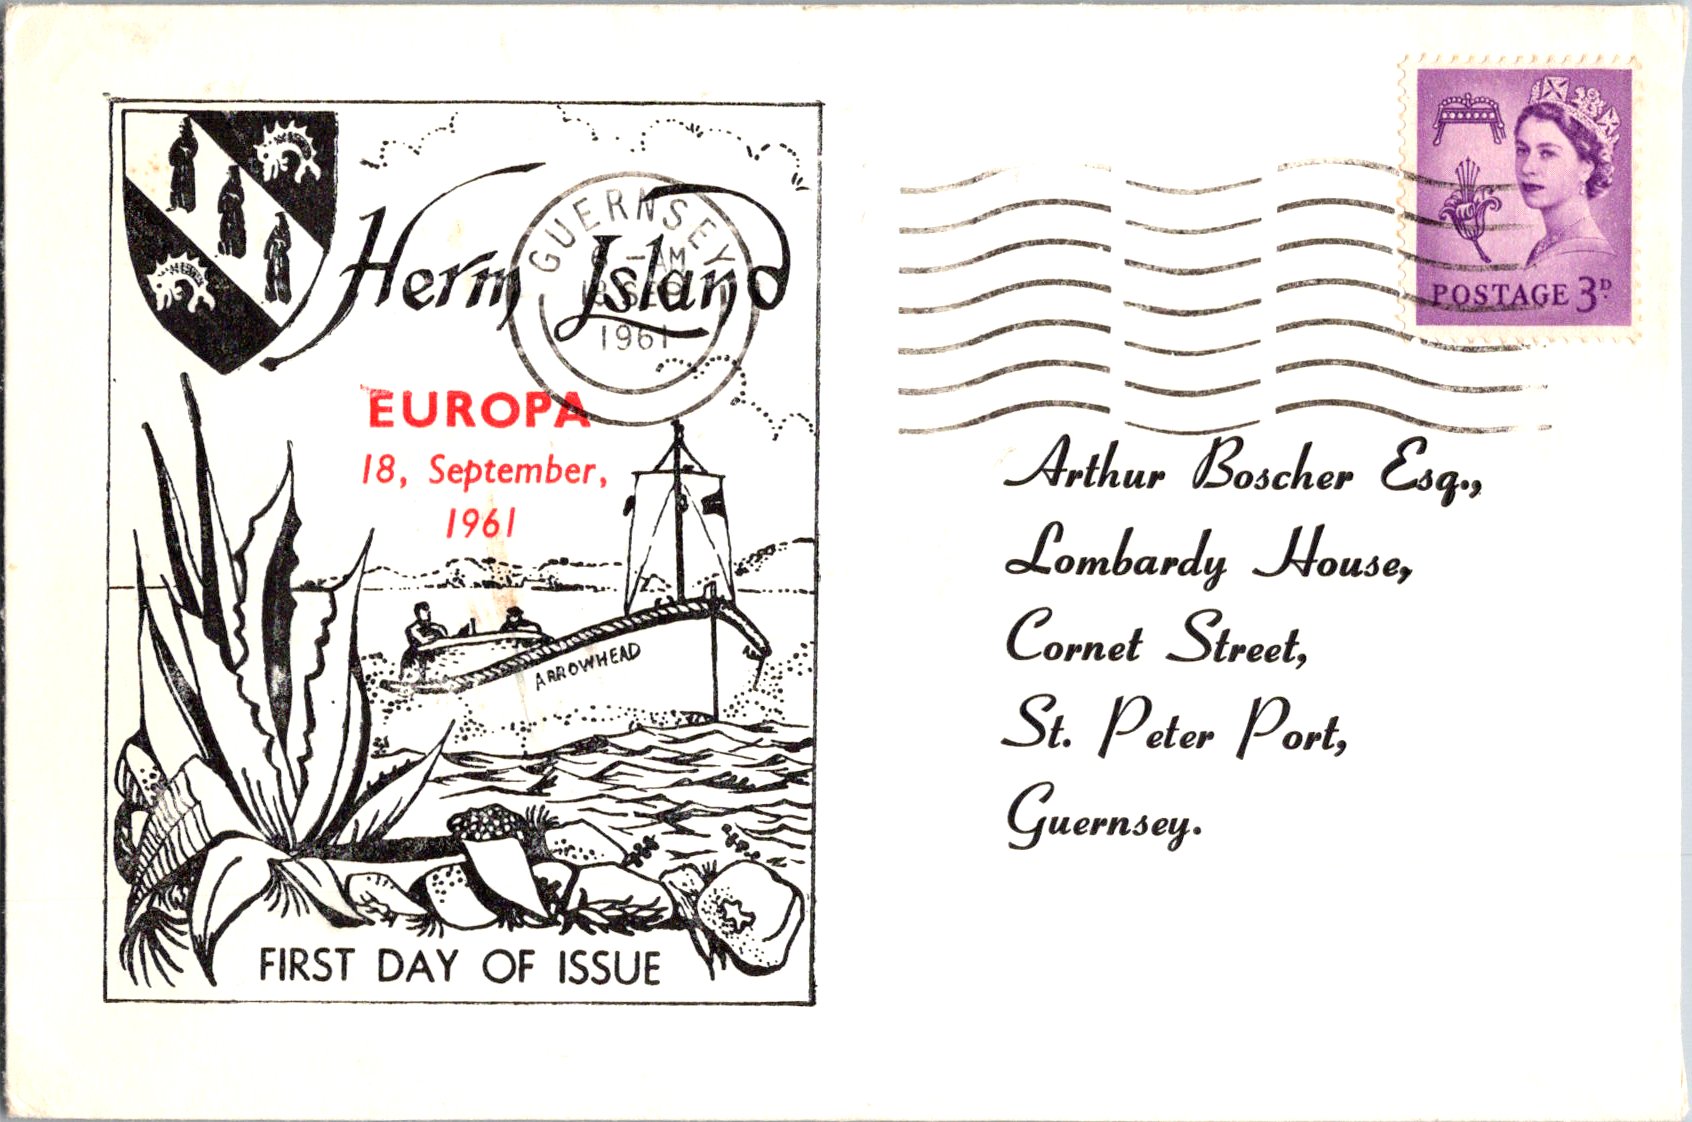 Herm Island
GUERNSEY
- AM
18 SEP
1961
EUROPA
18, September,
1961
ARROWHEAD
FIRST DAY OF ISSUE
POSTAGE 3D.
Arthur Boscher Esq.,
Lombardy House,
Cornet Street,
St. Peter Port,
Guernsey.